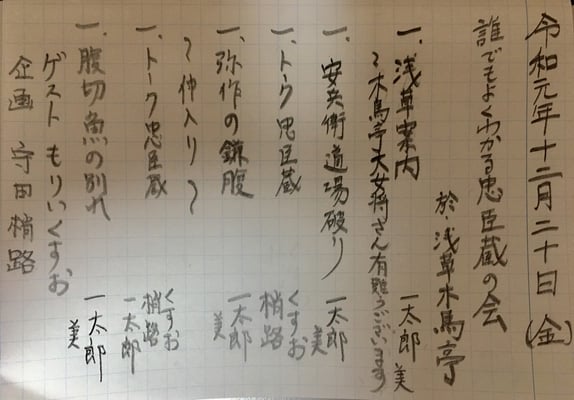 令和元年十二月二十日(金)
誰でもよくわかる忠臣蔵の会
於 浅草木馬亭
一、浅草案内 一太郎 美
〜木馬亭大女将さん有難うございます
一、安兵衛道場破り 一太郎 美
一、トーク忠臣蔵 くすお 梢路 一太郎
一、弥作の鎌腹 一太郎 美
〜仲入り〜
一、トーク忠臣蔵 くすお 梢路 一太郎
一、腹切魚の別れ 一太郎 美
ゲスト もりいくすお
企画 守田梢路